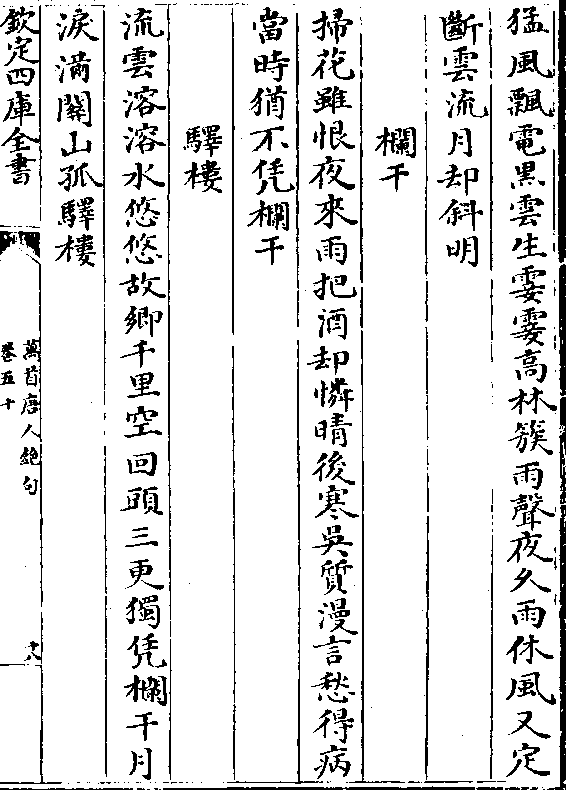 猛風飄電黒雲生霎霎髙林簇雨聲夜久雨休風又定
斷雲流月却斜明
欄干
掃花雖恨夜來雨把酒却憐晴後寒吳質漫言愁得病
當時猶不凭欄干
驛樓
流雲溶溶水悠悠故鄉千里空回頭三更獨凭欄干月
淚滿關山孤驛樓
欽定四庫全書
萬首唐人絶句
卷五十
十八